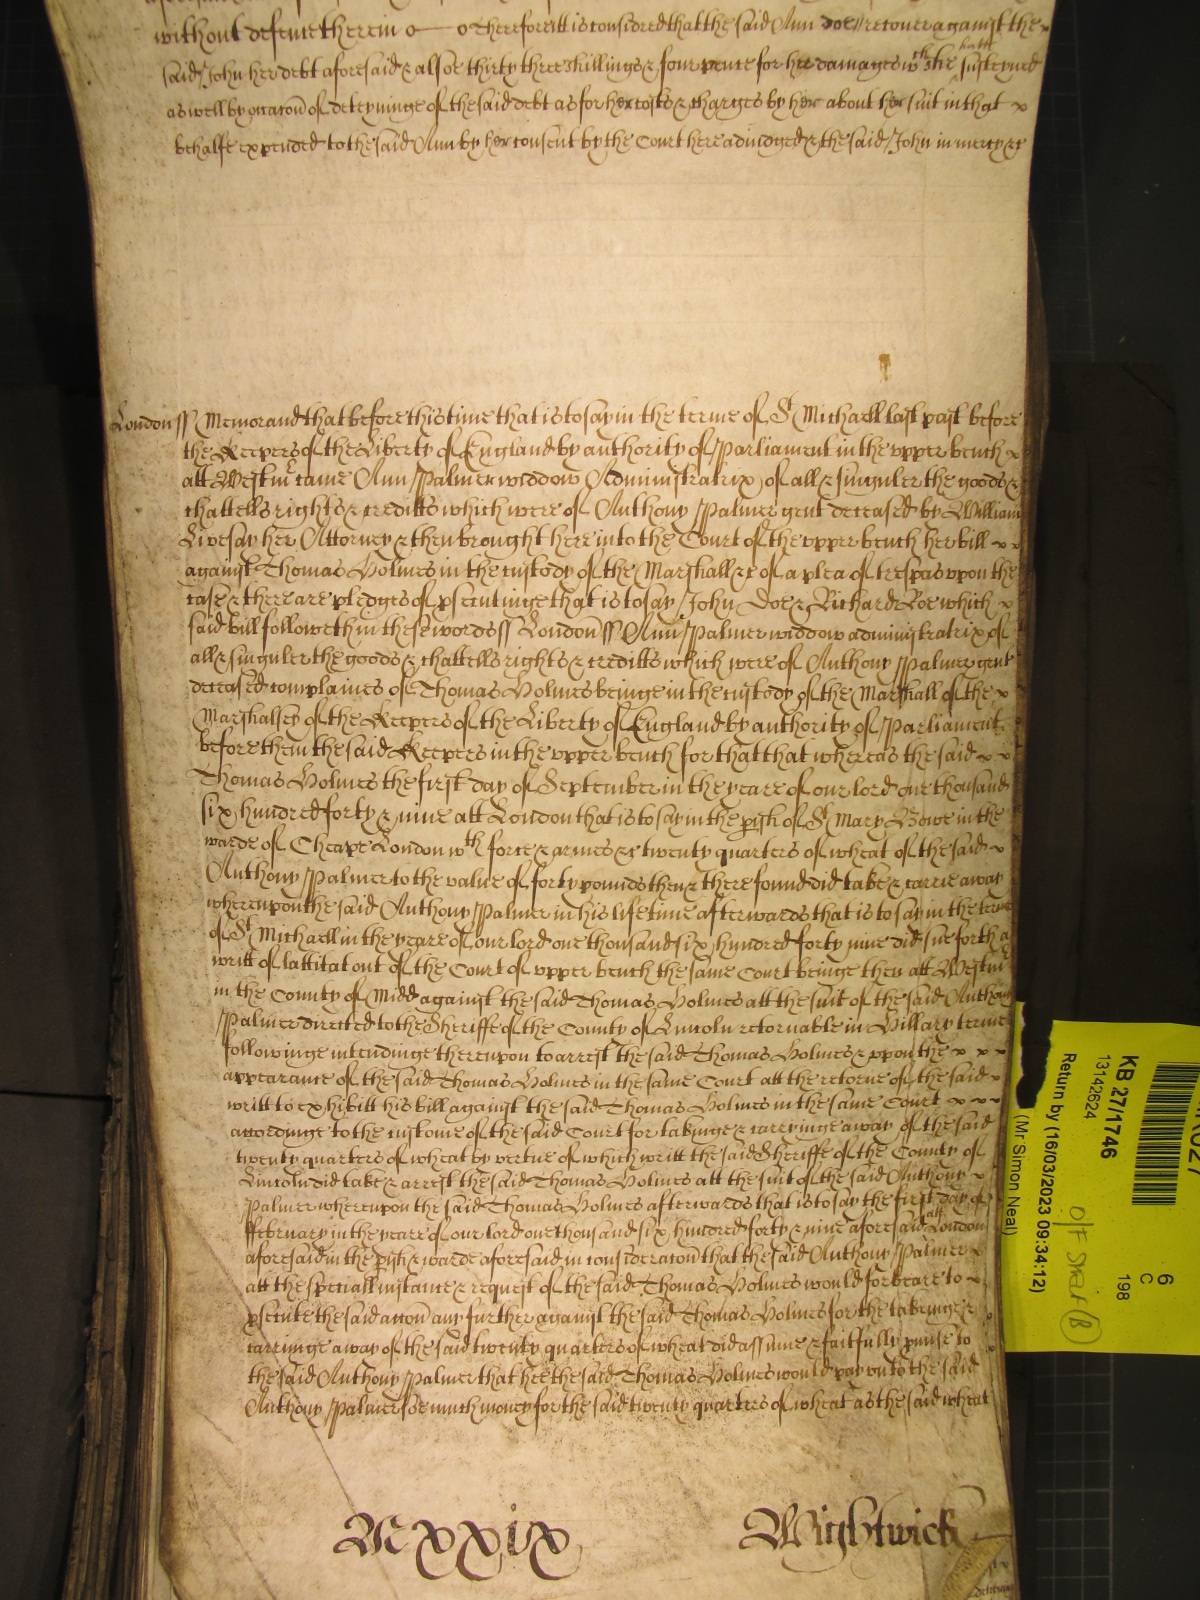 without defence therein o— o Therefore itt is considred that the said Ann doe recover against the
said John her debt aforesaid & alsoe thirty three shillings & four pence for her damages wth she hath susteyned
as well by occacon of deteyninge of the said debt as for her costs & charges by her about her suit in that
behalfe expended to the said Ann by her consent by the Court here adiudged & the said John in mercy &c
London ss Memorand that before this time that is to say in the terme of St Michaell last past before
the Keepers of the Liberty of England by authority of Parliament in the upper bench
att Westmr came Ann Palmer widdow Administratrix of all & singuler the goods &
chattells rights & creditts which were of Anthony Palmer gent deceased by William
Livesay her Attorney & then brought here into the Court of the upper bench her bill
against Thomas Holmes in the custody of the Marshall &c of a plea of trespas upon the
case & there are pledges of psecutinge that is to say John Doe & Richard Roe which
said bill followeth in these words ss London ss Ann Palmer widdow administratrix of
all & singuler the goods & chattells rights & creditts which were of Anthony Palmer gent
deceased complaines of Thomas Holmes beinge in the custody of the Marshall of the
Marshalsey of the Keepers of the Liberty of England by authority of Parliament
before them the said Keepers in the upper bench for that that whereas the said
Thomas Holmes the first day of September in the yeare of our lord one thousand
six hundred forty & nine att London that is to say in the pish of St Mary Bowe in the
warde of Cheape London wth force & armes &c twenty quarters of wheat of the said
Anthony Palmer to the value of forty pounds then & there found did take & carrie away
whereupon the said Anthony Palmer in his life time afterwards that is to say in the terme
of St Michaell in the yeare of our lord one thousand six hundred forty nine did sue forth a
writt of lattitat out of the Court of upper bench the same Court beinge then att Westmr
in the County of Midd against the said Thomas Holmes att the suit of the said Anthony
Palmer directed to the Sheriffe of the County of Lincoln retornable in Hillary terme
followinge intendinge thereupon to arrest the said Thomas Holmes & upon the
appearance of the said Thomas Holmes in the same Court att the retorne of the said
writt to exhibitt his bill against the said Thomas Holmes in the same Court
accordinge to the custome of the said Court for takinge & carryinge away of the said
twenty quarters of wheat by vertue of which writt the said Sheriffe of the County of
Lincoln did take & arrest the said Thomas Holmes att the suit of the said Anthony
Palmer whereupon the said Thomas Holmes afterwards that is to say the first day of
ffebruary in the yeare of our lord one thousand six hundred forty & nine aforesaid att London
aforesaid in the pish & warde aforesaid in consideracon that the said Anthony Palmer
att the speciall instance & request of the said Thomas Holmes would forbeare to
psecute the said accon any further against the said Thomas Holmes for the takeinge &
carringe away of the said twenty quarters of wheat did assume & faitfully pmise to
the said Anthony Palmer that hee the said Thomas Holmes would pay unto the said
Anthony Palmer soe much money for the said twenty quarters of wheat as the said wheat
M xxix Wightwick
KB 27/1746
13142624
Return by (16/03/2023 09:34:12)
(Mr Simon Neal)
6
C
198